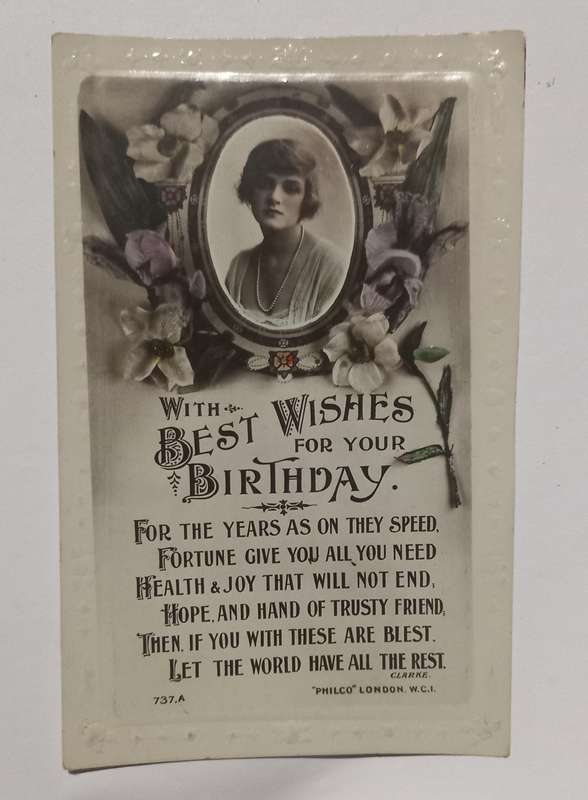 WITH
BEST WISHES
FOR YOUR
BIRTHDAY.
FOR THE YEARS AS ON THEY SPEED,
FORTUNE GIVE YOU ALL YOU NEED
HEALTH & JOY THAT WILL NOT END,
HOPE, AND HAND OF TRUSTY FRIEND,
THEN, IF YOU WITH THESE ARE BLEST.
LET THE WORLD HAVE ALL THE REST.
CLARKE.
"PHILCO" LONDON. W.C.1.
737.A